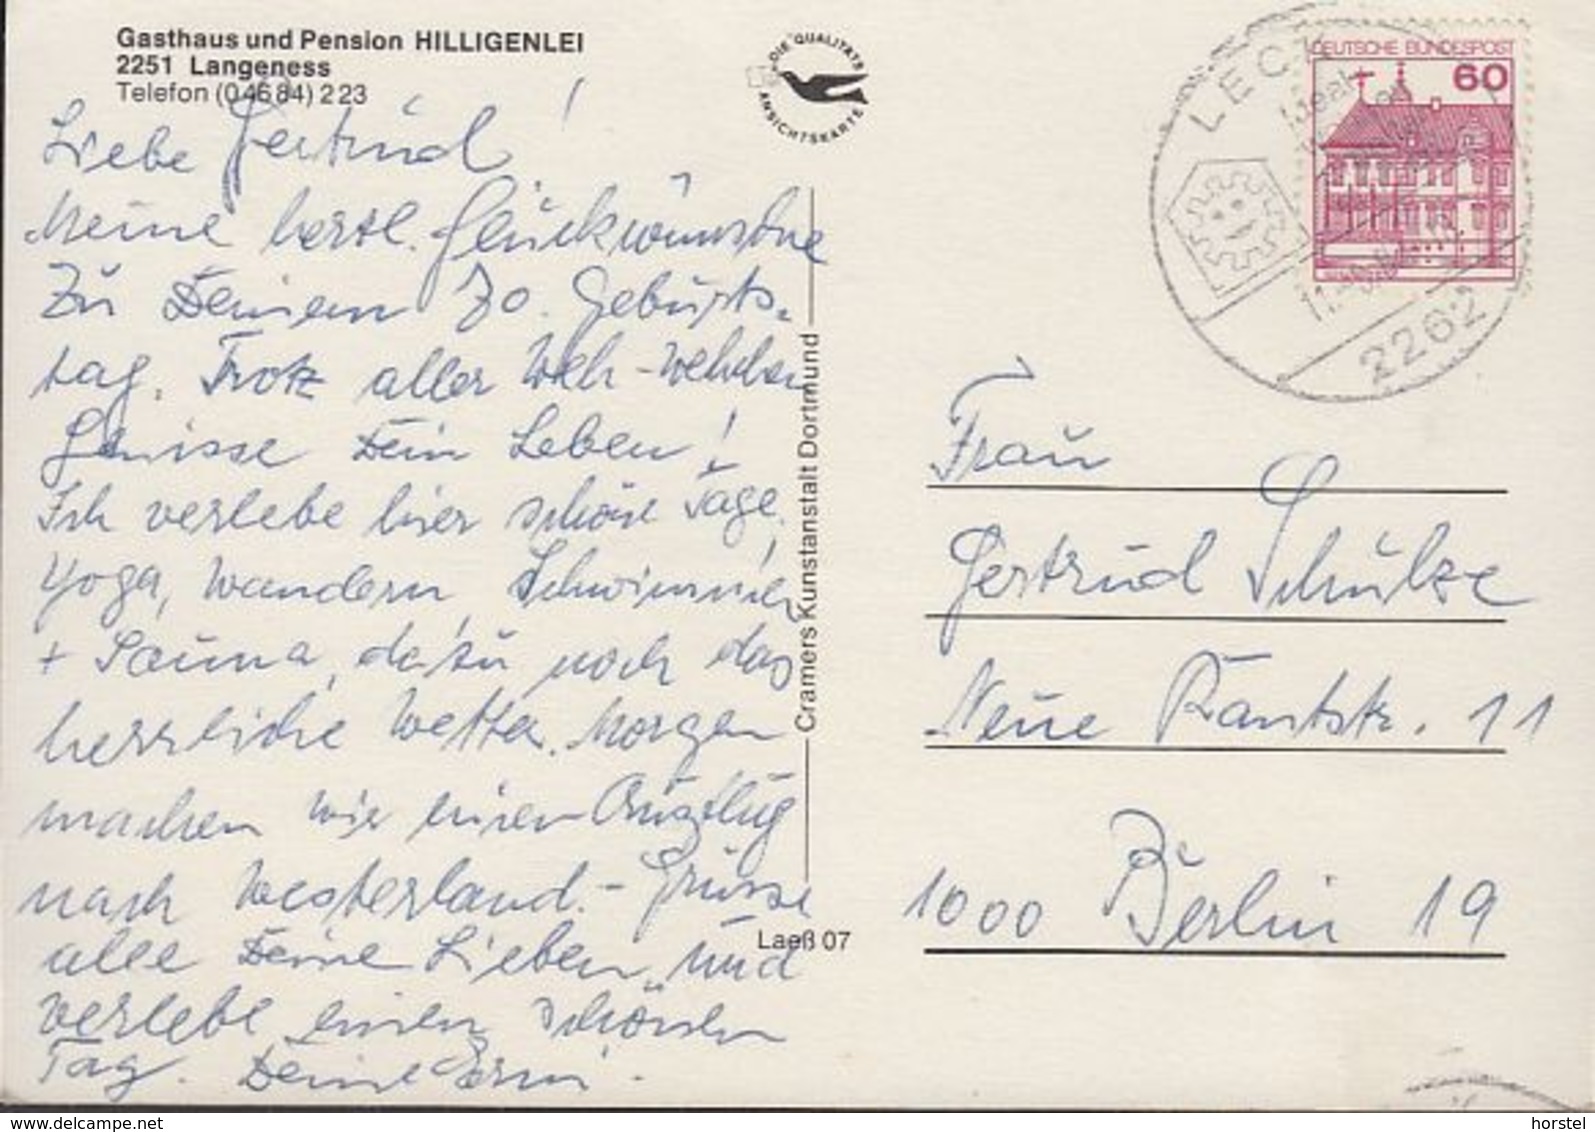 Gasthaus und Pension HILLIGENLEI
2251 Langeness
Telefon (04684) 223
DIE QUALITÄTS
ANSICHTSKARTE
Liebe Gertrud!
Meine herzl. Glückwünsche
Zu Deinem 70. Geburts-
tag. Trotz aller Weh-wehchen
Genisse Dein Leben!
Ich verlebe hier schöne Tage!
Yoga, Wandern, Schwimmen
+ Sauna, dazu noch das
herrliche Wetter. Morgen
machen wir einen Ausflug
nach Westerland. - Grüsse
alle Deine Lieben, und
verlebe einen schönen
Tag. Deine Erni.
Cramers Kunstanstalt Dortmund
Laeß 07
LECK
2262
DEUTSCHE BUNDESPOST
60
Frau
Gertrud Schulze
Neue Kantstr. 11
1000 Berlin 19
www.delcampe.net
horstel